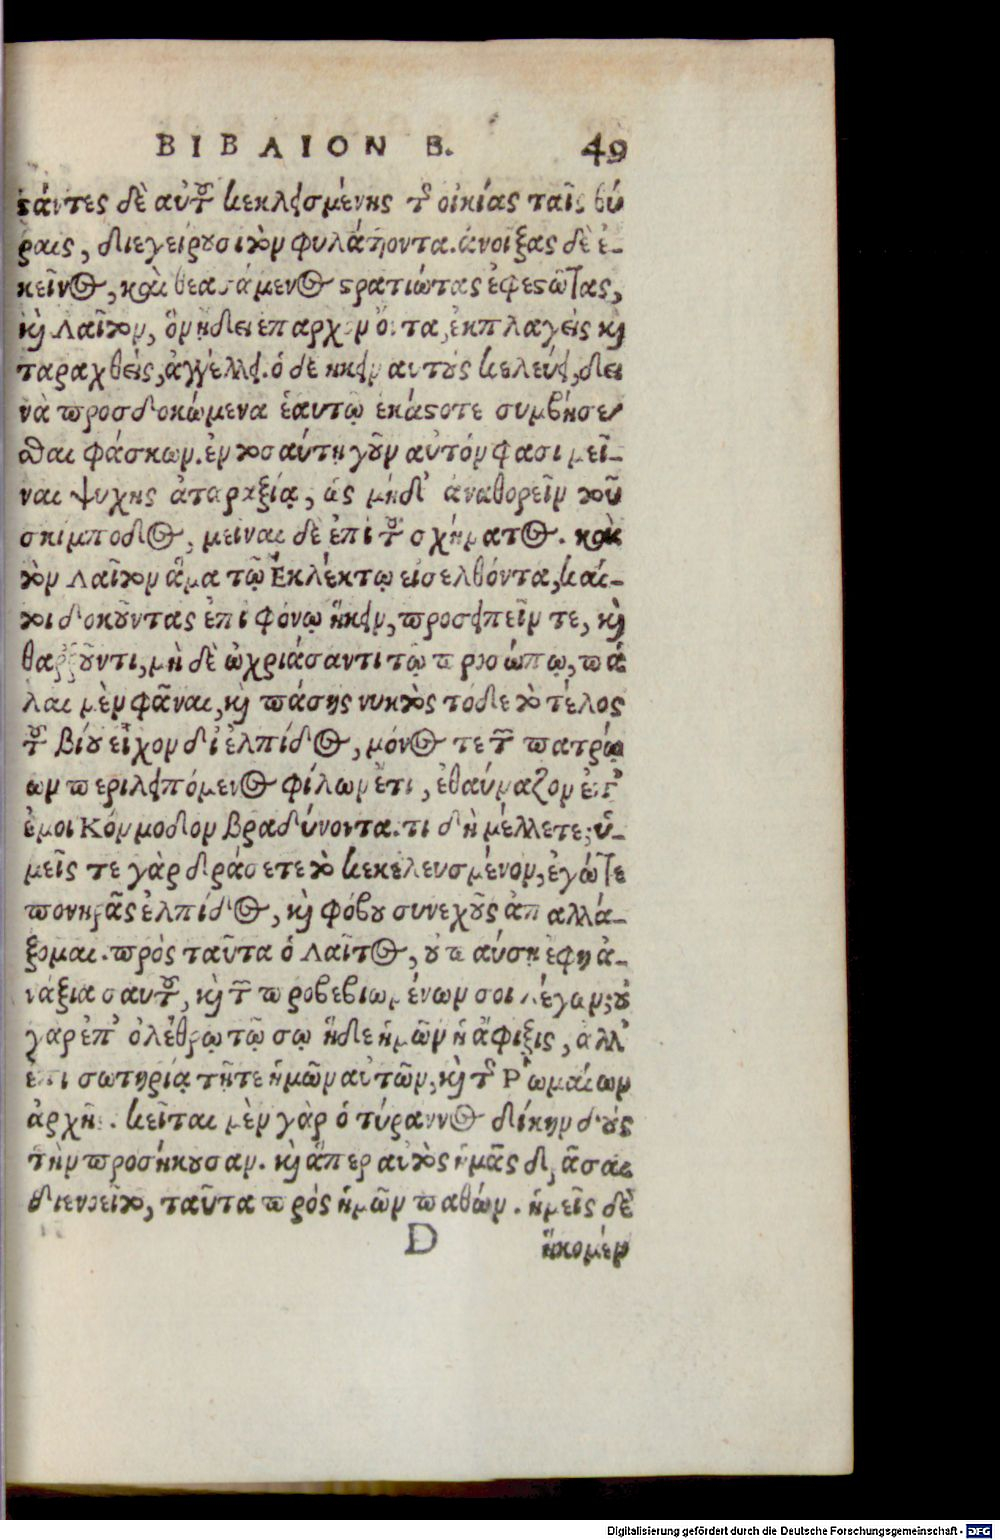 ΒΙΒΛΙΟΝ Β. 49
στάντες δὲ αὐτοῦ κεκλεισμένης τῆς οἰκίας ταῖς θύ
ραις, διεγείρουσι τὸν φυλάττοντα. ἀνοίξας δὲ ἐ-
κεῖνος, καὶ θεασάμενος στρατιώτας ἐφεστῶτας,
καὶ Λαῖτον, ὃν ᾔδει ἔπαρχον ὄντα, ἐκπλαγεὶς καὶ
ταραχθεὶς, ἀγγέλλει. ὁ δὲ ἥκειν αὐτοὺς κελεύει, δει
νὰ προσδοκώμενα ἑαυτῷ ἑκάστοτε συμβήσε
σθαι φάσκων. ἐν τοσαύτῃ γοῦν αὐτόν φασι μεῖ-
ναι ψυχῆς ἀταραξίᾳ, ὡς μηδ' ἀναθορεῖν τοῦ
σκίμποδος, μεῖναι δὲ ἐπὶ τοῦ σχήματος. καὶ
τὸν Λαῖτον ἅμα τῷ Ἐκλέκτῳ εἰσελθόντα, καί-
τοι δοκοῦντας ἐπὶ φόνῳ ἥκειν, προσειπεῖν τε, καὶ
θαρροῦντι, μὴ δὲ ὠχριάσαντι τῷ προσώπῳ, πά
λαι μὲν φᾶναι, καὶ πάσης νυκτὸς τόδε τὸ τέλος
τοῦ βίου εἶχον δι' ἐλπίδος, μόνος τε τῶν πατρῴ
ων περιλειπόμενος φίλων ἔτι, ἐθαύμαζον ἐπ'
ἐμοι Κόμμοδον βραδύνοντα. τι δὴ μέλλετε; ὑ-
μεῖς τε γὰρ δράσετε τὸ κεκελευσμένον, ἐγώ τε
πονηρᾶς ἐλπίδος, καὶ φόβου συνεχοῦς ἀπαλλά-
ξομαι. πρὸς ταῦτα ὁ Λαῖτος, οὐ παύσῃ ἔφη ἀ-
νάξια σαυτοῦ, καὶ τῶν προβεβιωμένων σοι λέγων; οὐ
γὰρ ἐπ' ὀλέθρῳ τῷ σῷ ἥδε ἡμῶν ἡ ἄφιξις, ἀλλ'
ἐπι σωτηρίᾳ τῇ τε ἡμῶν αὐτῶν, καὶ τῆς Ῥωμαίων
ἀρχῆς. κεῖται μὲν γὰρ ὁ τύραννος δίκην δοὺς
τὴν προσήκουσαν. καὶ ἅπερ αὐτὸς ἡμᾶς δρᾶσαι
διενοεῖτο, ταῦτα πρὸς ἡμῶν παθών. ἡμεῖς δὲ
D ἥκομεν
Digitalisierung gefördert durch die Deutsche Forschungsgemeinschaft - DFG